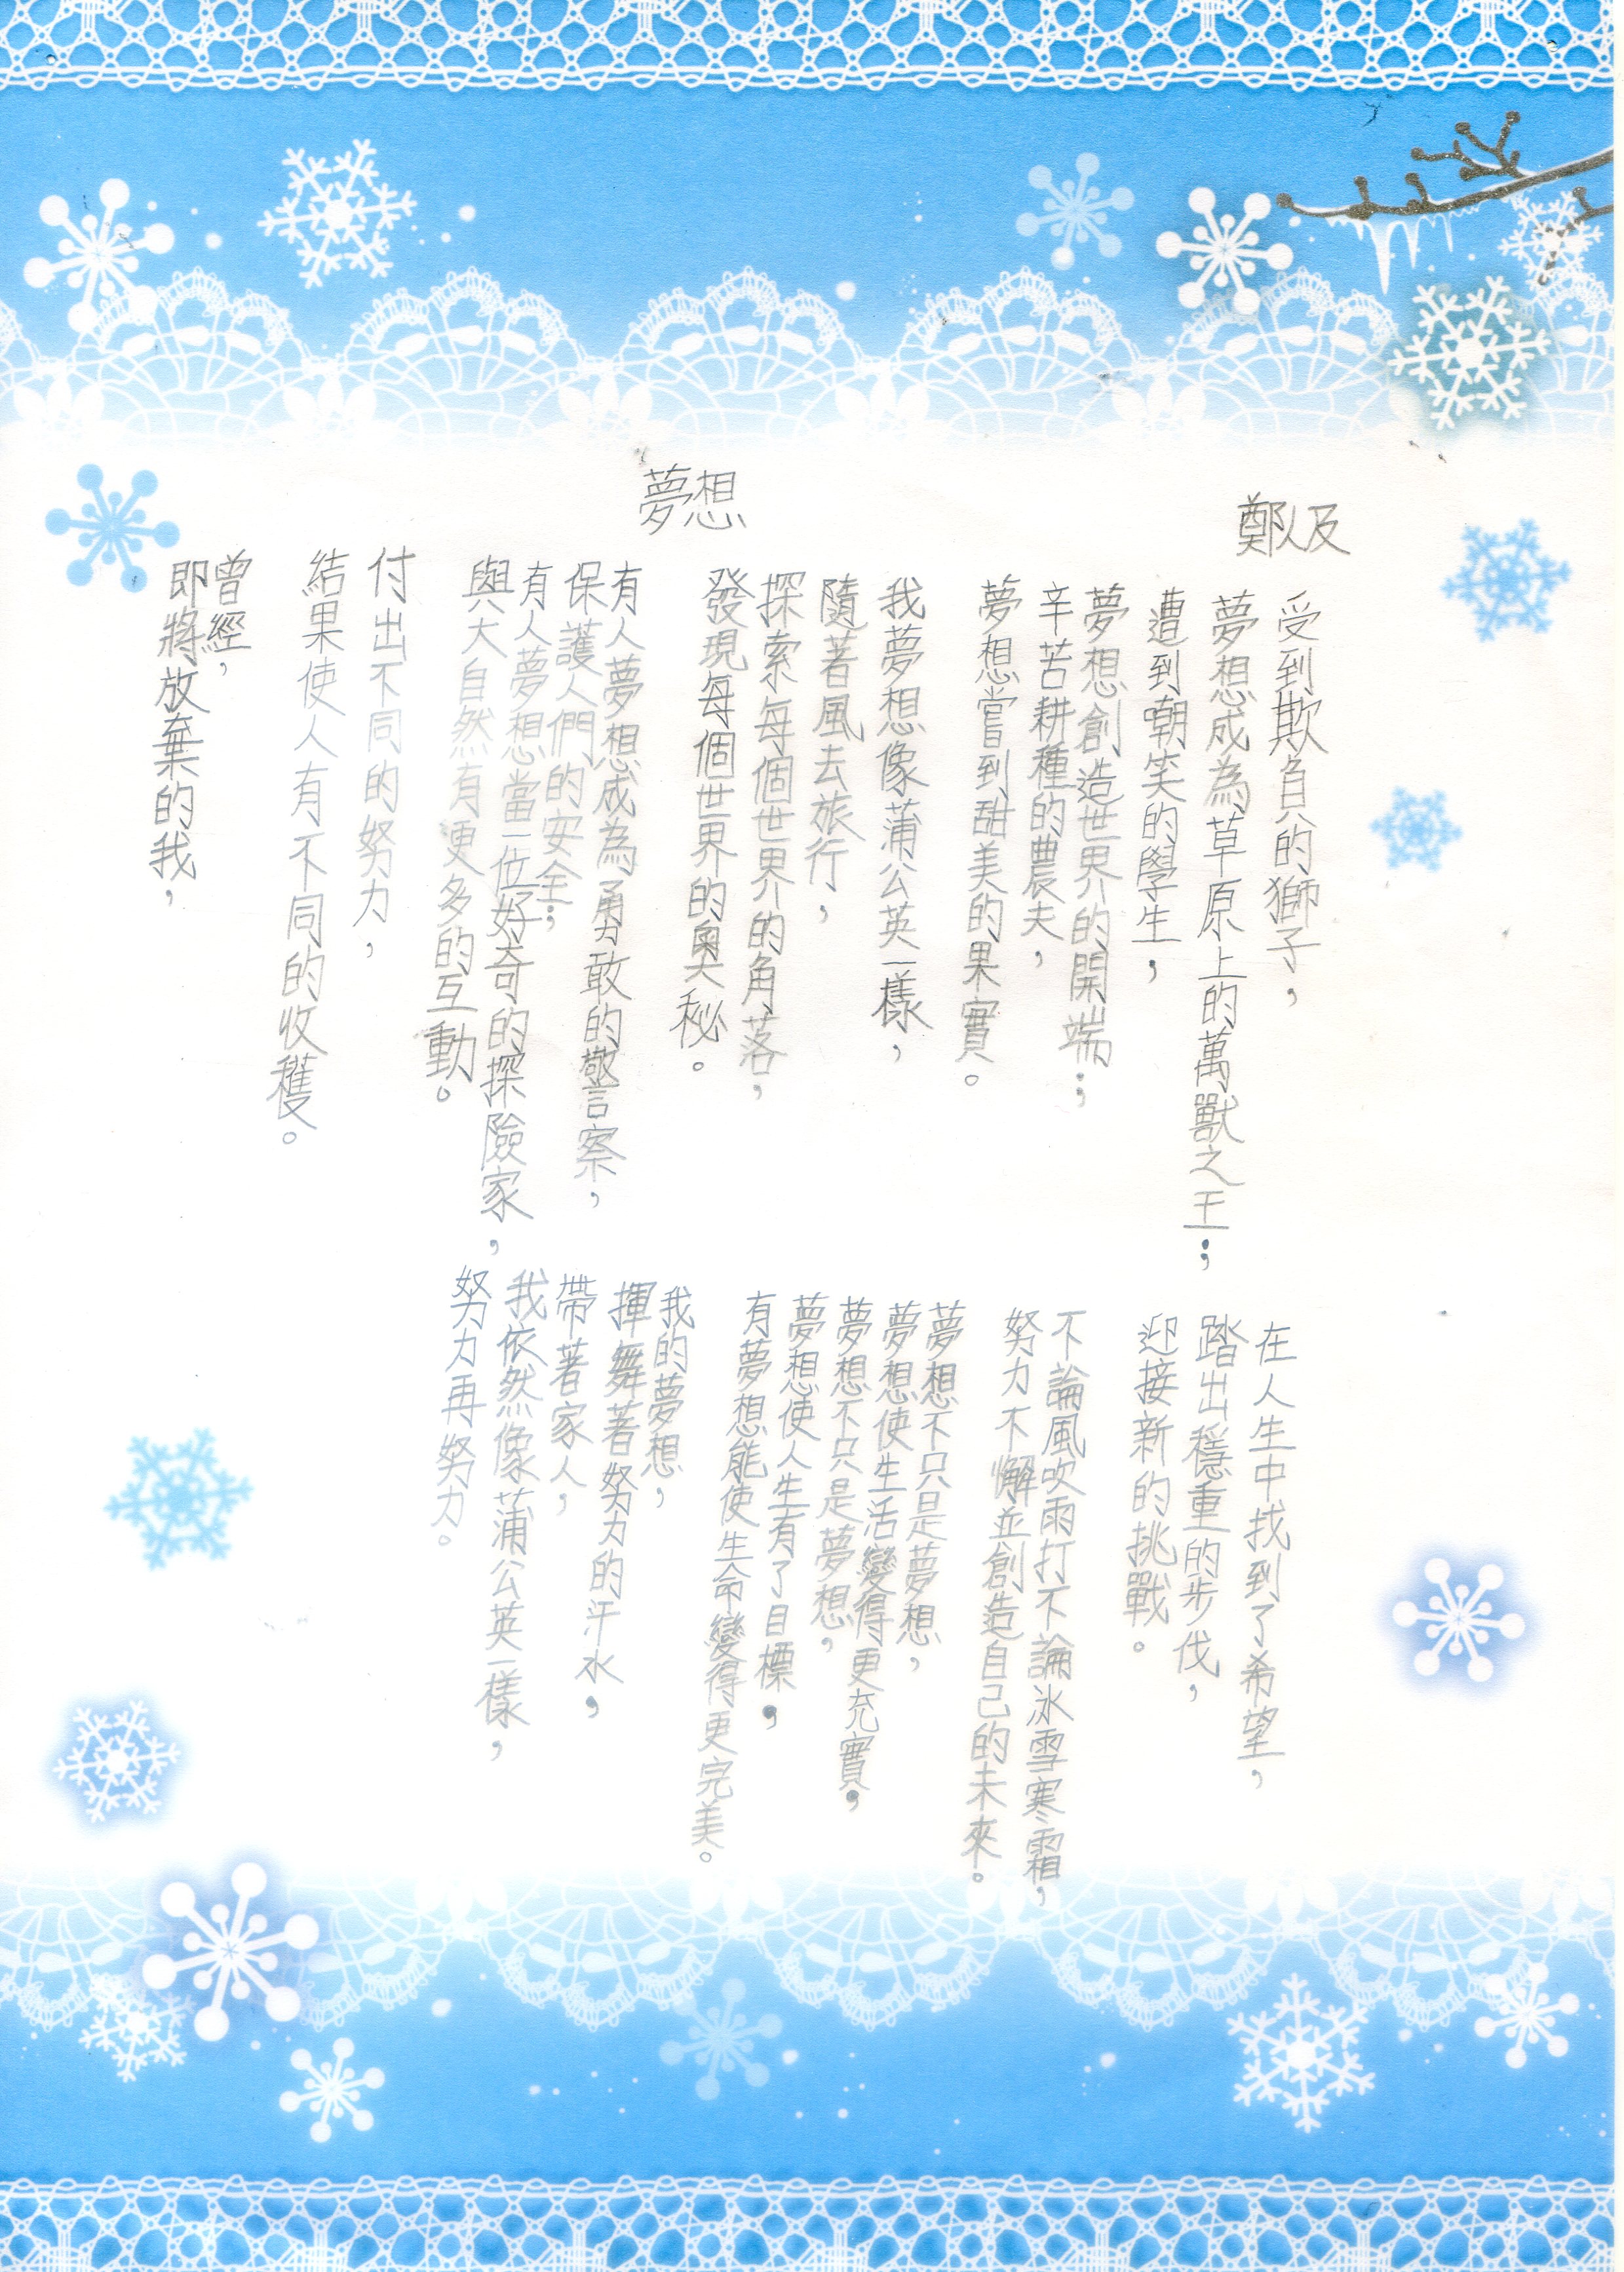 夢想
鄭以及
受到欺負的獅子，
夢想成為草原上的萬獸之王；
遭到嘲笑的學生，
夢想創造世界的開端；
辛苦耕種的農夫，
夢想嘗到甜美的果實。
我夢想像蒲公英一樣，
隨著風去旅行，
探索每個世界的角落，
發現每個世界的奧秘。
有人夢想成為勇敢的警察，
保護人們的安全；
有人夢想當一位好奇的探險家，
與大自然有更多的互動。
付出不同的努力，
結果使人有不同的收穫。
曾經，
即將放棄的我，
在人生中找到了希望，
踏出穩重的步伐，
迎接新的挑戰。
不論風吹雨打不論冰雪寒霜，
努力不懈並創造自己的未來。
夢想不只是夢想，
夢想使生活變得更充實，
夢想不只是夢想，
夢想使人生有了目標，
有夢想能使生命變得更完美。
我的夢想，
揮舞著努力的汗水，
帶著家人，
我依然像蒲公英一樣，
努力再努力。